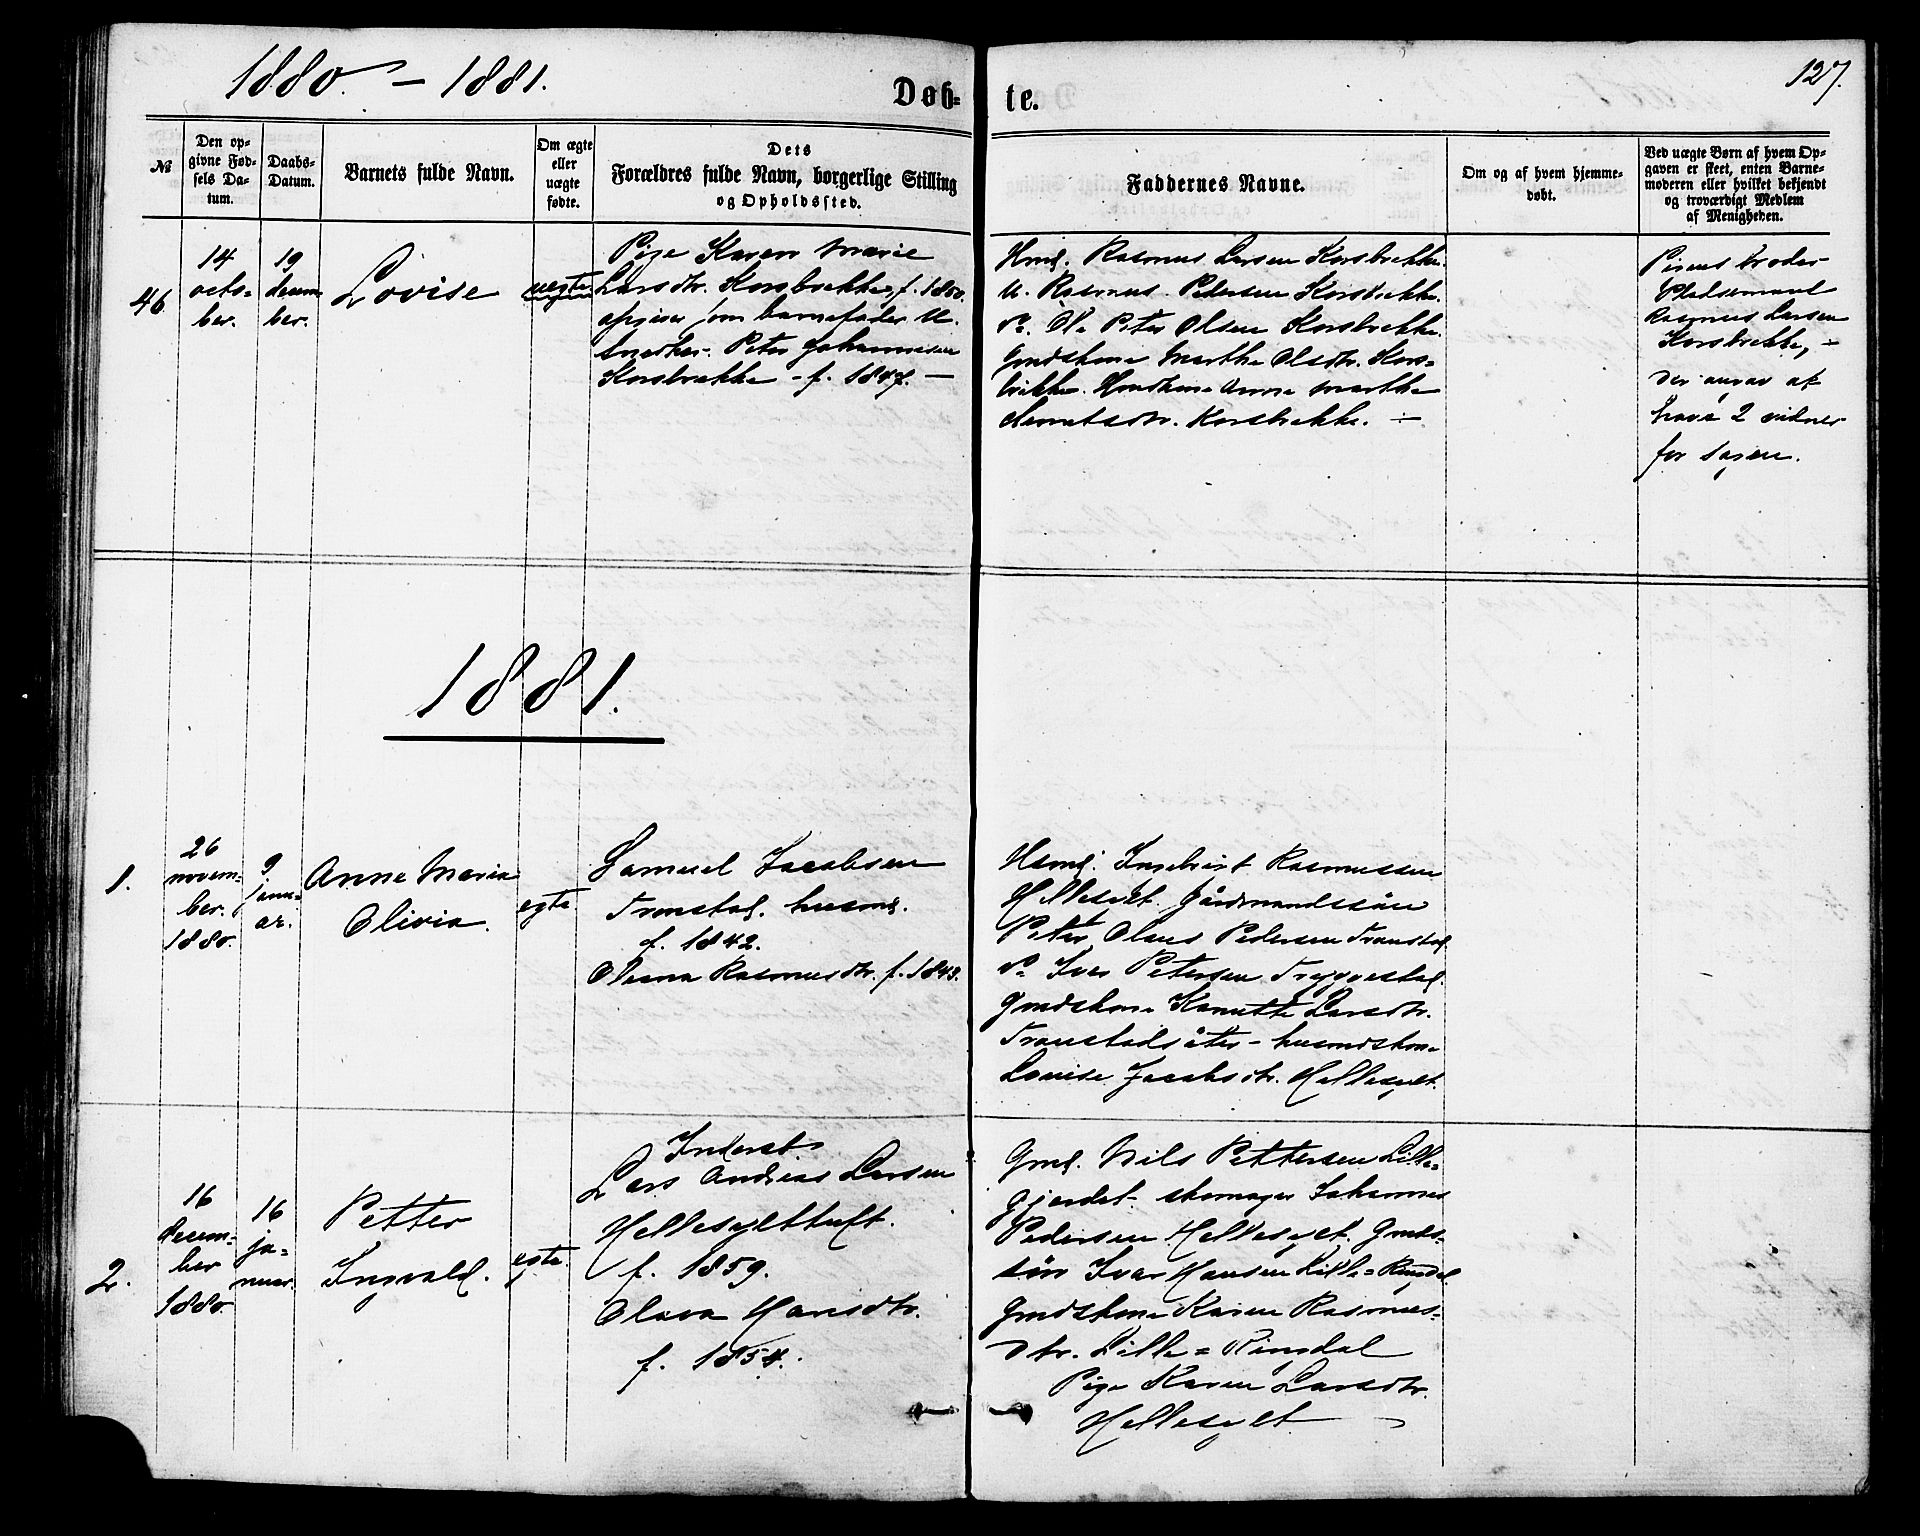 1880. – 1881.
Døb-
te.
127.
№
Den op-
givne Fød-
sels Da-
tum.
Daabs-
Datum.
Barnets fulde Navn.
Om ægte
eller
uægte
fødte.
Dets
Forældres fulde Navn, borgerlige Stilling
og Opholdssted.
Faddernes Navne.
Om og af hvem hjemme-
døbt.
Ved uægte Børn af hvem Op-
gaven er skeet, enten Barne-
moderen eller hvilket bekjendt
og troværdigt Medlem
af Menigheden.
46.
14
octo-
ber.
19
decem
ber.
Lovise
uegte
Pige Karen Marie
Larsdtr. Korsbrekke, f. 1850.
opgiver som barnefader U.
Snedker. Peter Johannesen
Korsbrække – f. 1847. –
Hmd. Rasmus Larsen Korsbrekke.
U. Rasmus Petersen Korsbrekke.
do. Ole Peter Olsen Korsbrekke.
Gmdskone Marthe Olsdtr. Kors-
brekke. Hmdkone Anne Marthe
Korsbrekke. –
Pigens broder
Pladsemand
Rasmus Larsen
Korsbrekke, –
der at
have 2 vidner
for sagen.
1881.
1.
26
novem-
ber.
1880.
9
janu-
ar.
Anne Maria
Olivia.
egte
Samuel Jacobsen
Tronstad. husmd.
f. 1842.
Olsena Rasmusdtr. f. 1843.
Husmd. Ingebrigt Rasmussen
Hellesylt. Gårdmandssøn
Peter Olaus Pedersen Tronstad.
do. Ivar Petersen Tryggestad.
Gmdskone Kanutte Larsdtr.
Tronstadsäter – husmdskone
Lovise Jacobsdtr. Hellesylt.
2.
16
decem-
ber
1880.
16
ja-
nuar.
Petter
Ingvald.
egte
Inderst
Lars Andreas Larsen
Hellesylttuft.
f. 1859.
Olava Hansdtr.
f. 1854.
Gmd. Nils Pettersen Lille-
gjerdet. skomager Johannes
Pedersen Hellesylt. Gmds-
søn Ivar Hansen Lille=Ringdal
Gmdskone Karen Rasmus-
dtr. Lille=Ringdal
Pige Karen Larsdtr.
Hellesylt –